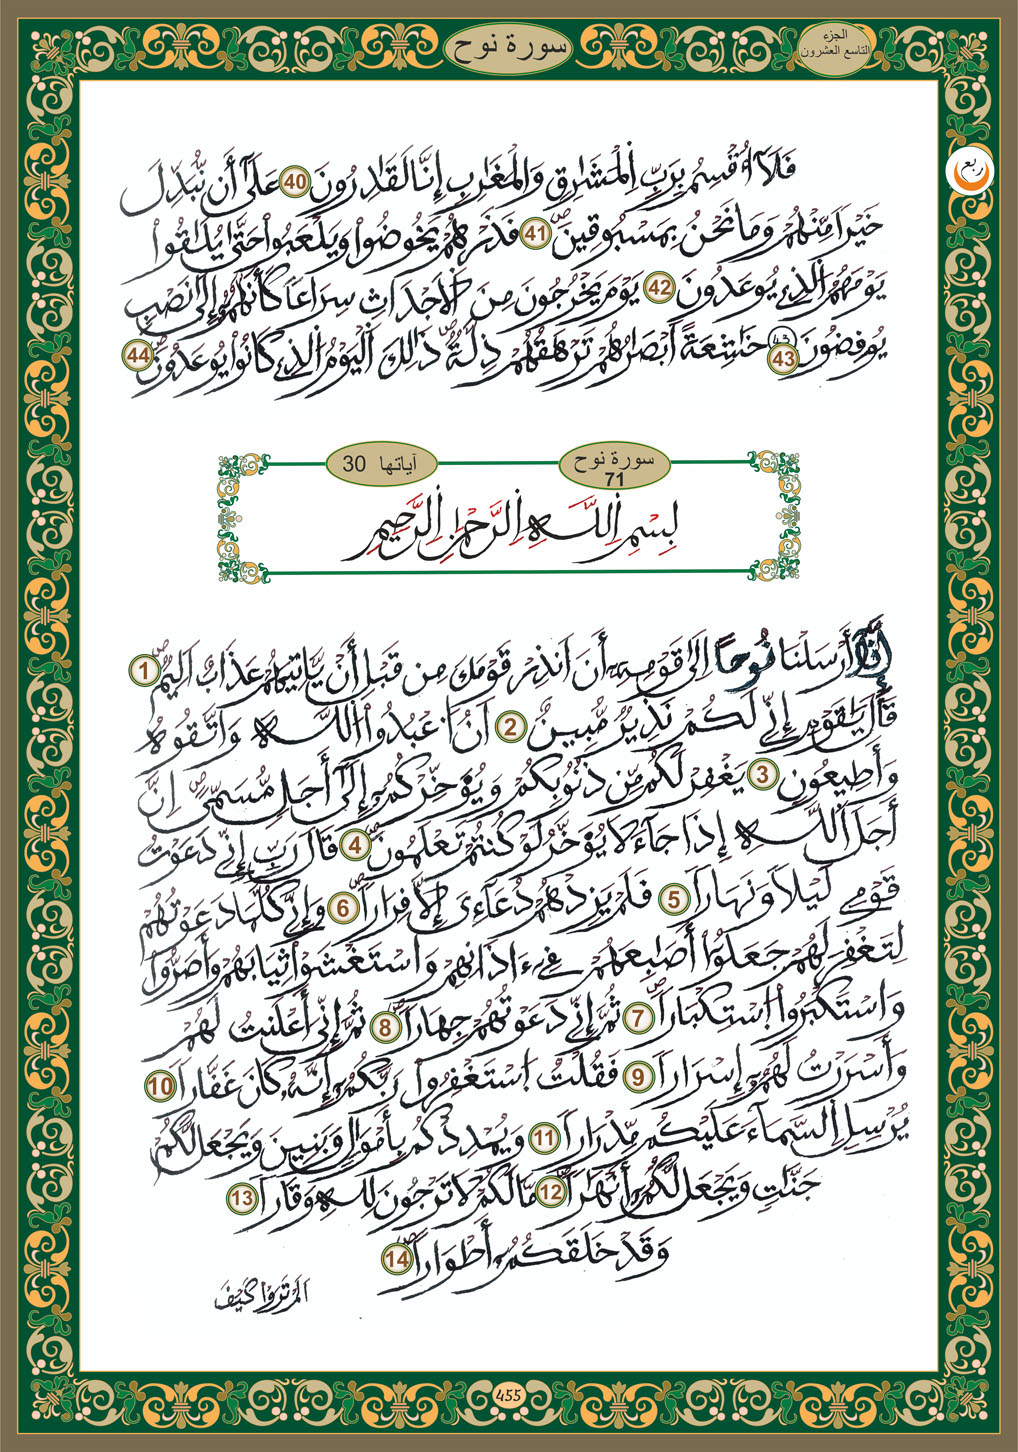 سورة نوح
الجزء
التاسع العشرون
ربع
فَلَآ أُقْسِمُ بِرَبِّ اِلْمَشَٰرِقِ وَالْمَغَٰرِبِ إِنَّا لَقَٰدِرُونَ 40 عَلَىٰٓ أَن نُّبَدِّلَ
خَيْراً مِّنْهُمْ وَمَا نَحْنُ بِمَسْبُوقِينَ 41 فَذَرْهُمْ يَخُوضُواْ وَيَلْعَبُواْ حَتَّىٰ يُلَٰقُواْ
يَوْمَهُمُ الذِے يُوعَدُونَ 42 يَوْمَ يَخْرُجُونَ مِنَ اَلَاجْدَاثِ سِرَاعاً كَأَنَّهُمُۥٓ إِلَىٰ نَصْبٍ
يُوفِضُونَ 43 خَٰشِعَةً اَبْصَٰرُهُمْ تَرْهَقُهُمْ ذِلَّةٌ ذَٰلِكَ اَلْيَوْمُ الذِے كَانُواْ يُوعَدُونَ 44
سورة نوح
71
آياتها 30
بِسْمِ اِللَّهِ اِلرَّحْمَٰنِ اِلرَّحِيمِ
إِنَّآ أَرْسَلْنَا نُوحاً اِلَىٰ قَوْمِهِۦٓ أَنَ اَنذِرْ قَوْمَكَ مِن قَبْلِ أَنْ يَّاتِيَهُمْ عَذَابٌ اَلِيمٌ 1
قَالَ يَٰقَوْمِ إِنِّے لَكُمْ نَذِيرٌ مُّبِينٌ 2 اَنُ اُعْبُدُواْ اُللَّهَ وَاتَّقُوهُ
وَأَطِيعُونِ 3 يَغْفِرْ لَكُم مِّن ذُنُوبِكُمْ وَيُؤَخِّرْكُمُۥٓ إِلَىٰٓ أَجَلٍ مُّسَمّىً اِنَّ
أَجَلَ اَللَّهِ إِذَا جَآءَ لَا يُؤَخَّرُ لَوْ كُنتُمْ تَعْلَمُونَ 4 قَالَ رَبِّ إِنِّے دَعَوْتُ
قَوْمِے لَيْلاً وَنَهَاراً 5 فَلَمْ يَزِدْهُمْ دُعَآءِىَ إِلَّا فِرَاراً 6 وَإِنِّے كُلَّمَا دَعَوْتُهُمْ
لِتَغْفِرَ لَهُمْ جَعَلُوٓاْ أَصَٰبِعَهُمْ فِےٓ ءَاذَانِهِمْ وَاسْتَغْشَوْاْ ثِيَابَهُمْ وَأَصَرُّواْ
وَاسْتَكْبَرُواْ اُسْتِكْبَاراً 7 ثُمَّ إِنِّے دَعَوْتُهُمْ جِهَاراً 8 ثُمَّ إِنِّيَ أَعْلَنتُ لَهُمْ
وَأَسْرَرْتُ لَهُمُۥٓ إِسْرَاراً 9 فَقُلْتُ اُسْتَغْفِرُواْ رَبَّكُمُۥٓ إِنَّهُۥ كَانَ غَفَّاراً 10
يُرْسِلِ اِلسَّمَآءَ عَلَيْكُم مِّدْرَاراً 11 وَيُمْدِدْكُم بِأَمْوَٰلٍ وَبَنِينَ وَيَجْعَل لَّكُمْ
جَنَّٰتٍ وَيَجْعَل لَّكُمُۥٓ أَنْهَٰراً 12 مَّا لَكُمْ لَا تَرْجُونَ لِلهِ وَقَاراً 13
وَقَدْ خَلَقَكُمُۥٓ أَطْوَاراً 14
أَلَمْ تَرَوْاْ كَيْفَ
455